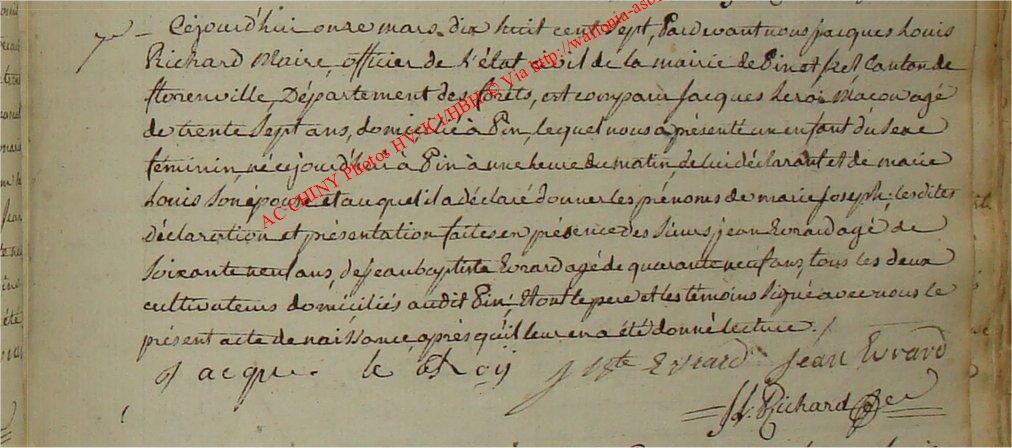 7e – Cejourd'hui onze mars dix huit cent sept, Pardevant nous jacques Louis
Richard Maire, officier de l'état civil de la mairie de Pin et Izel Canton de
florenville, Département des forêts, est comparu Jacques Leroi Maçon agé
de trente sept ans, domicilié à Pin, lequel nous a présenté un enfant du Sexe
féminin, né cejourd'hui à Pin à une heure du matin, de lui déclarant et de marie
Louis Son épouse et auquel il a déclaré donner les prénoms de marie joseph: les dites
Déclaration et présentation faites en présence des Sieurs jean Evrard agé de
Soixante neuf ans, de jean baptiste Evrard agé de quarante neuf ans, tous les deux
cultivateurs domiciliés audit Pin, Et ont le pere et les témoins Signé avec nous le
présent acte de naissance après qu'il leur en a été donné lecture ./.
jacque le Roij J Bte Evrard Jean Evrard
JL. Richard
AC CHINY Photos HV-ICI/HBH © Via http://wallonia-asb